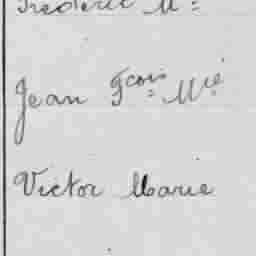 Frédéric Mⁱᵉ
Jean Fçois Mⁱᵉ
Victor Marie